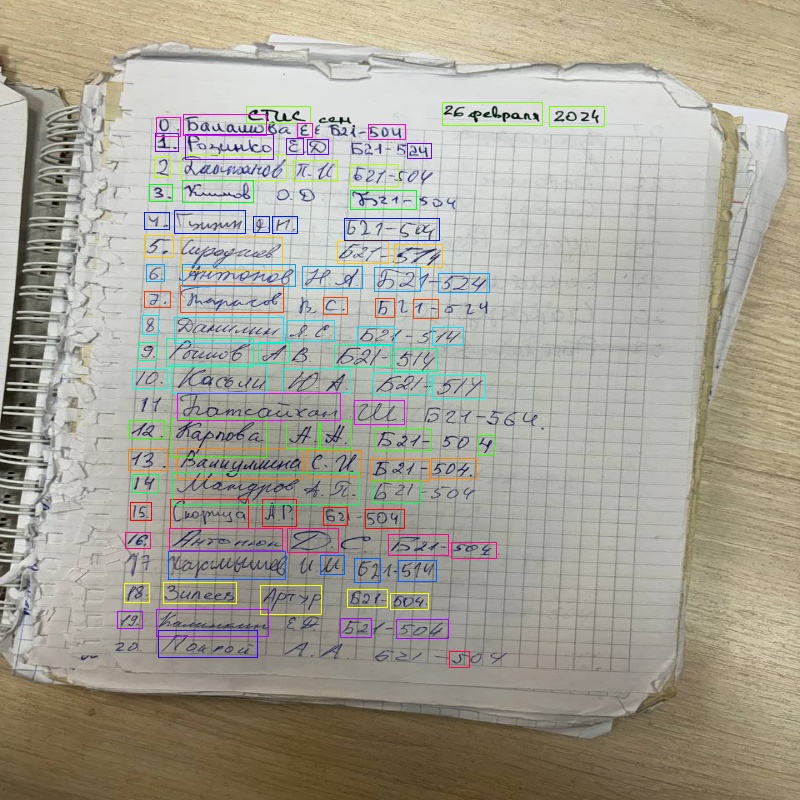 СТИС сем 26 февраля 2024
0. Балашова Е Е Б21-504
1. Розинко Е. Д Б21-524
2 П. И Б21-504
3. Климов О.Д Б21-504
4. И. Б21-504
5. Б21-514
6. Антонов Н. А Б21-524
7. Тарасов В. С. Б21-524
8. Данилин Я. С Б21-514
9. А В. Б21-514
10. Касьли Ю А. Б21-514
11 Батсайхан Ш. Б21-564.
12. Карпова А. А. Б21-504
13. С. И. Б21-504.
14 Мандров А. П. Б21-504
15. Скорица А.Р. Б21-504
16. Антонюк Д. С. Б21-504
17 Хармышев И И Б21-514
18. Зилеев Артур Б21-504.
19. Калинкин Е.Д. Б21-504
20. А. А. Б21-504